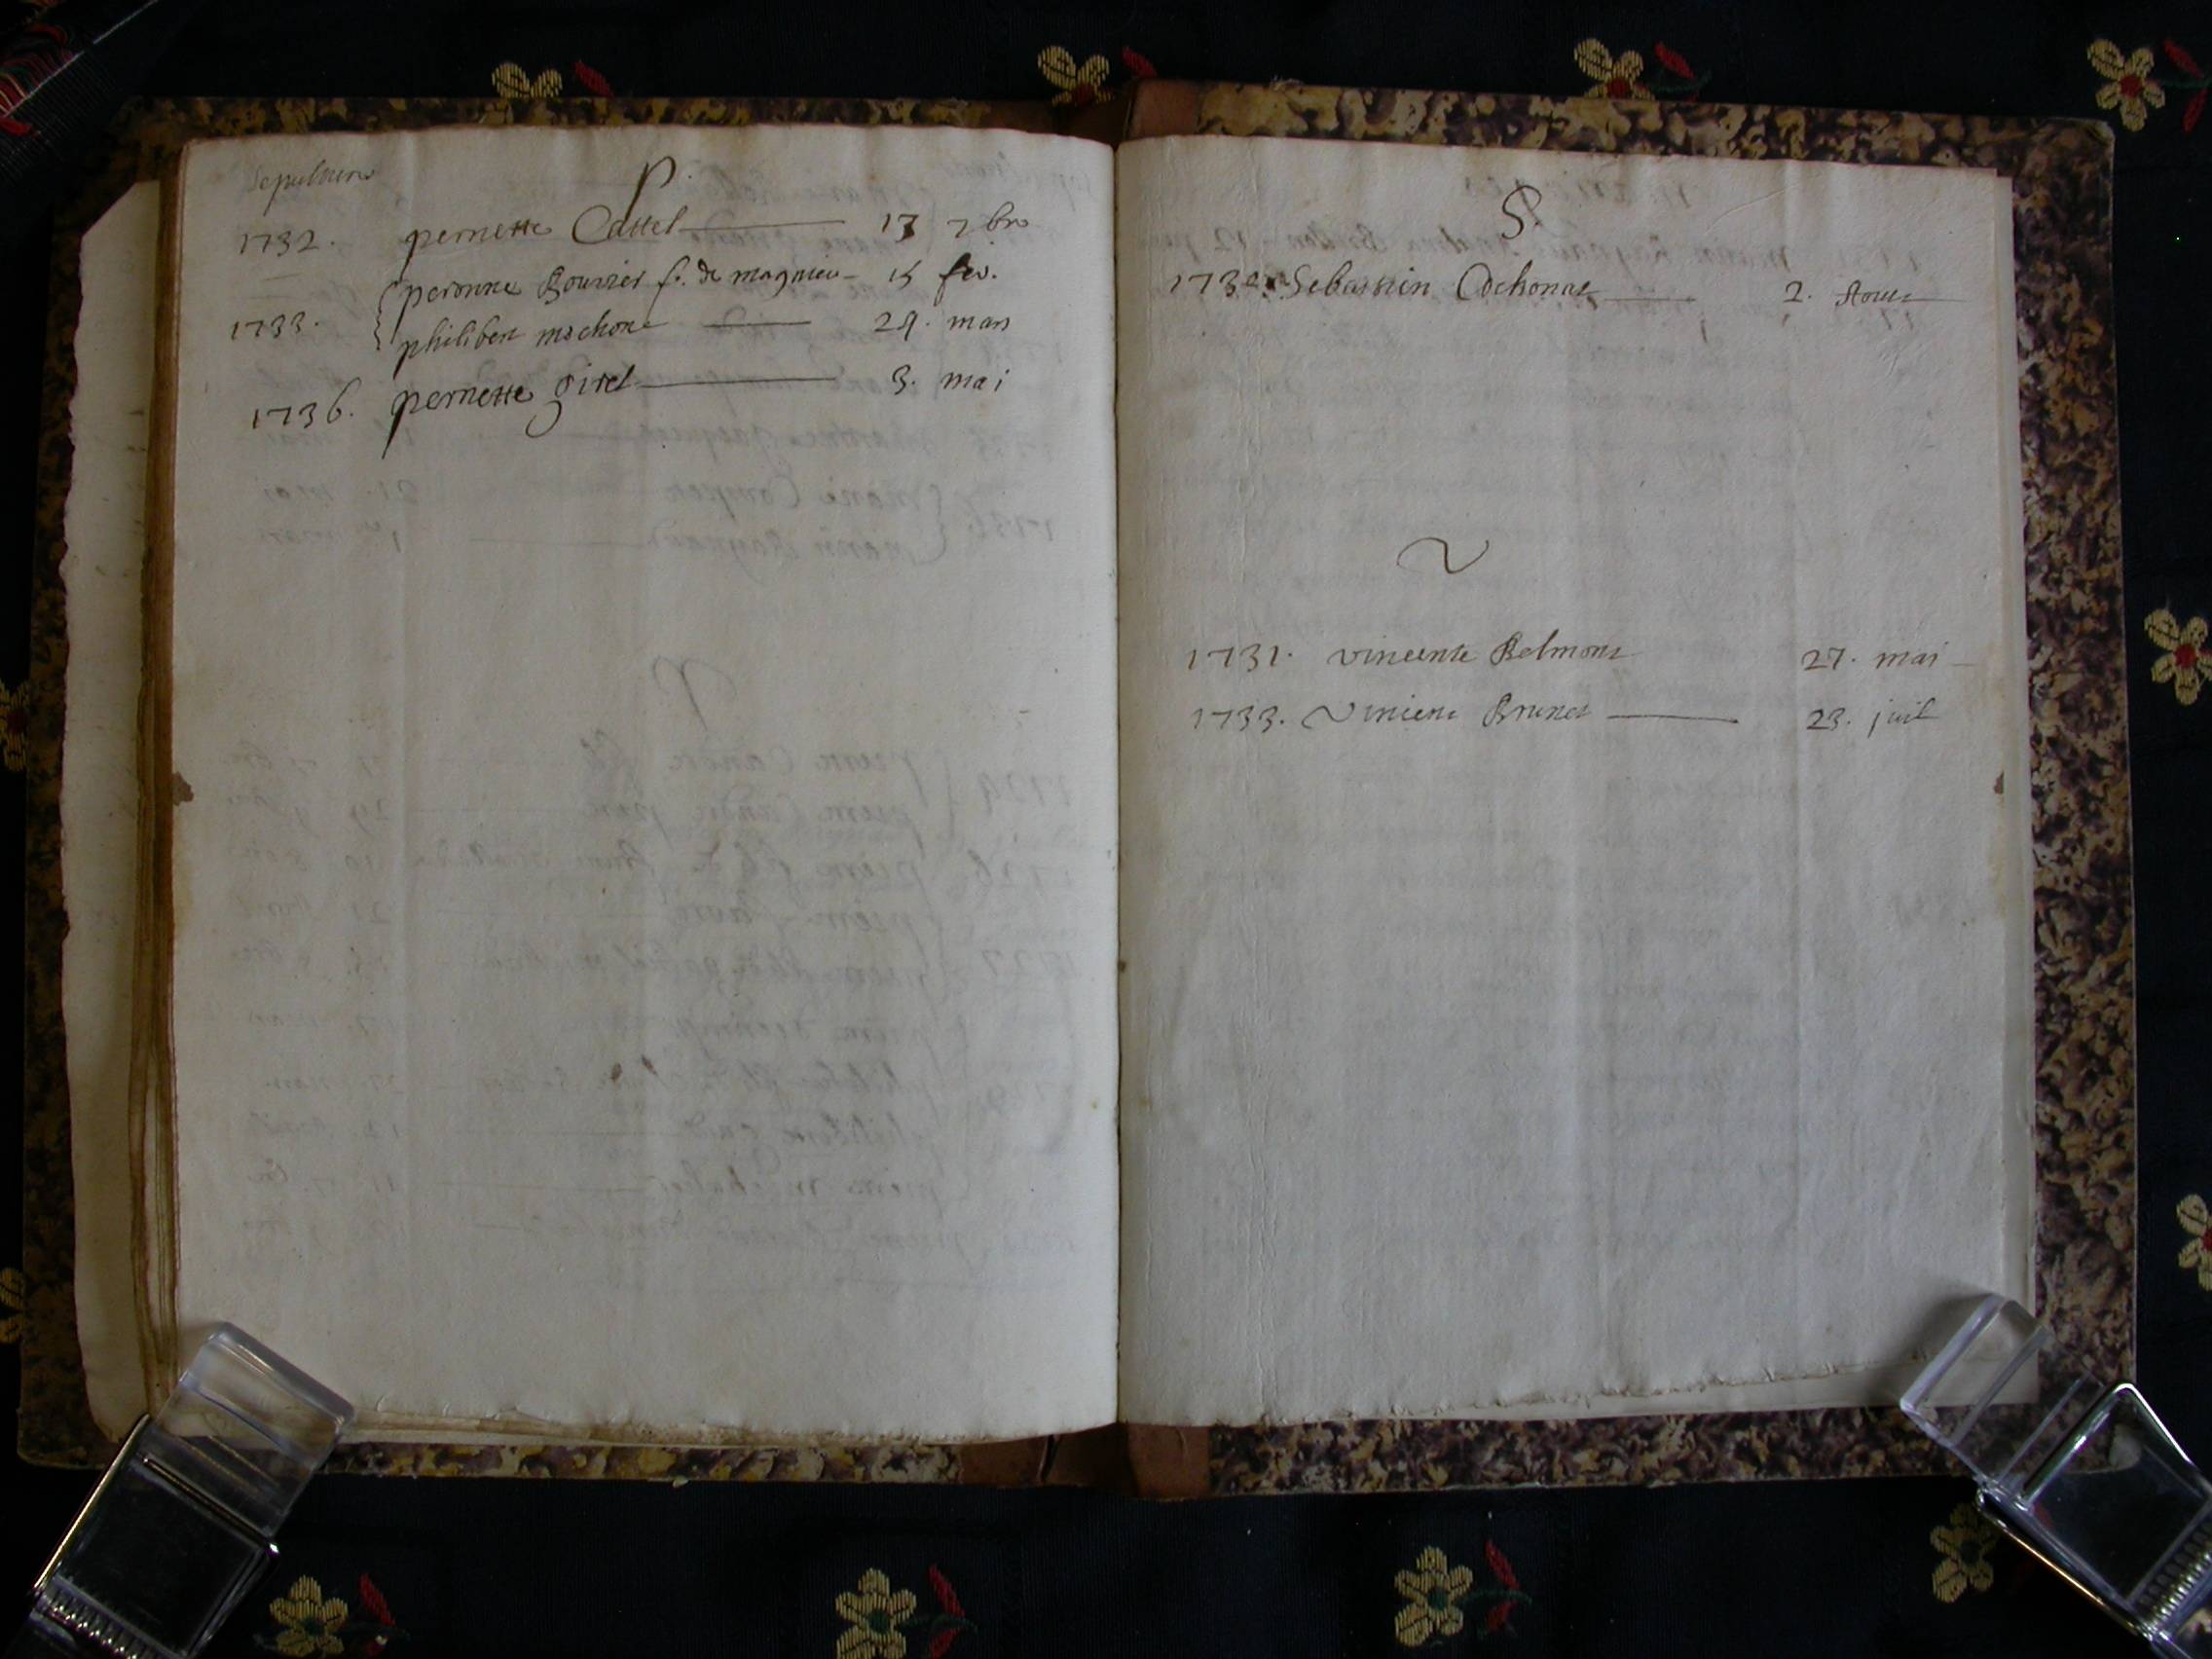 Sepultures
P.
1732. pernette Cattel 17 7bre
peronne Bouvier f. de magnieu 15 fev.
1733. philibert mochon 29. mars
1736. pernette girel 3. mai
S.
Sebastien Cochonat 2. Aoust
V
1731. vincente Belmont 27. mai
1733. Vincent Brunet 23. juil